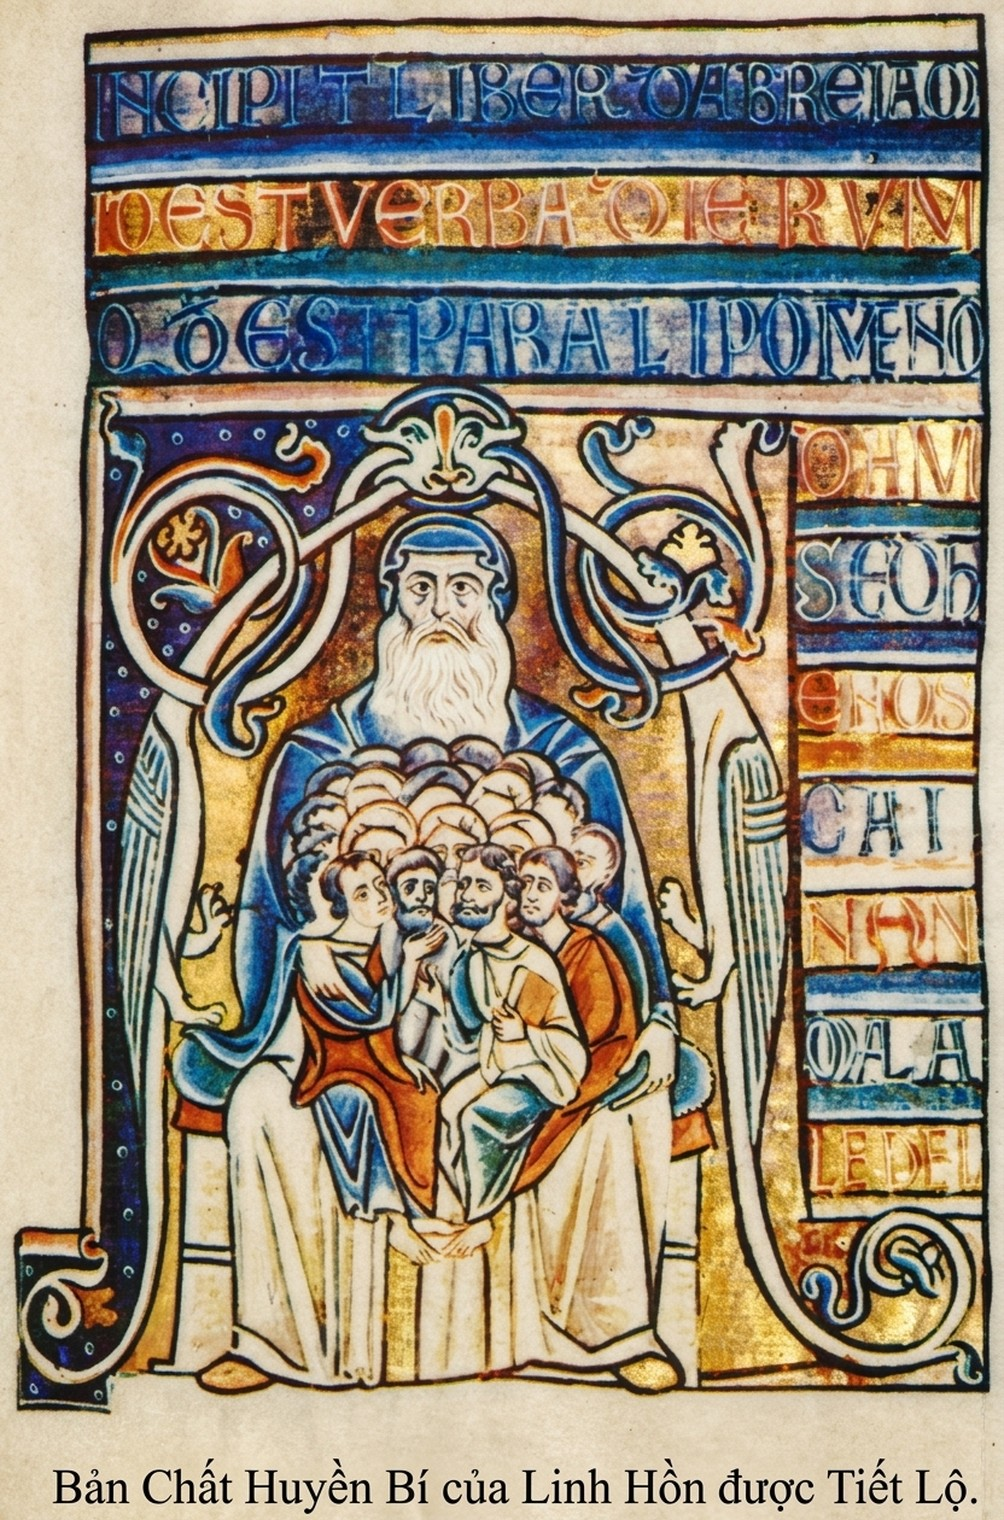 INCIPIT LIBER DABREIAM
IDEST VERBA DIERUM
QD EST PARALIPOMENO
DHM
SEOh
ENOS
CAI
NAN
MALA
LEDEL
Bản Chất Huyền Bí của Linh Hồn được Tiết Lộ.